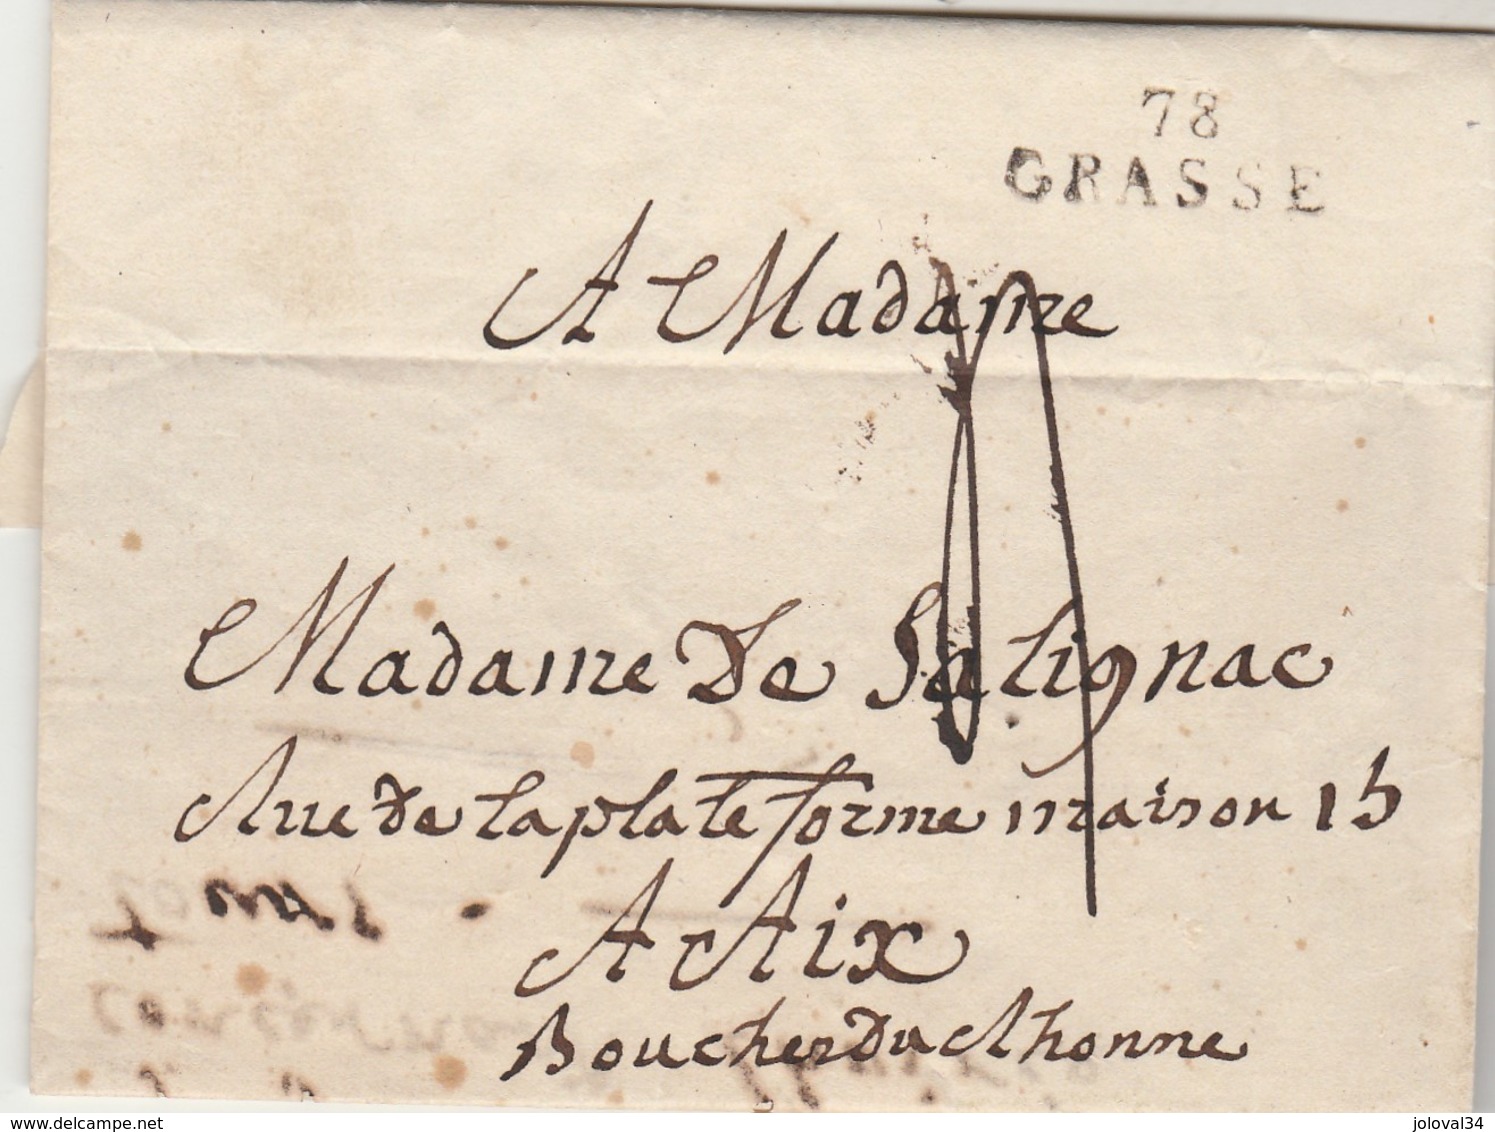 78
GRASSE
A Madame
Madame De Salignac
Rue de la plate forme maison 15
A Aix
Boucher du Rhonne
www.delcampe.net
joloval34